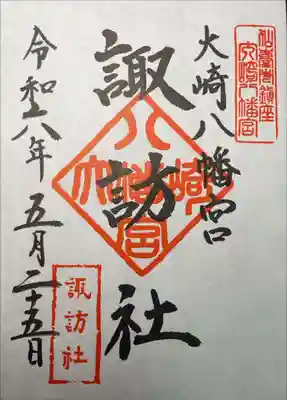 仙臺總鎮座
大崎八幡宮
大崎八幡宮
諏訪社
大崎八幡宮
令和八年五月二十五日
諏訪社